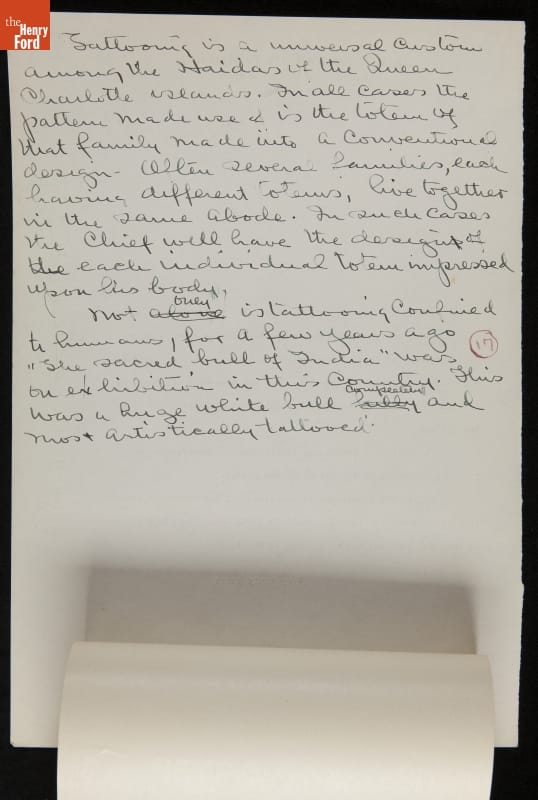 the
Henry
Ford
Tattooing is a universal custom
among the Haidas of the Queen
Charlotte islands. In all cases the
pattern made use of is the totem of
that family made into a conventional
design. Often several families, each
having different totems, live together
in the same abode. In such cases
the Chief will have the design of
the each individual totem impressed
upon his body.
Not alone only is tattooing confined
to humans, for a few years ago
17
"The sacred bull of India" was
on exhibition in this country. This
was a huge white bull fully completely and
most artistically tattooed